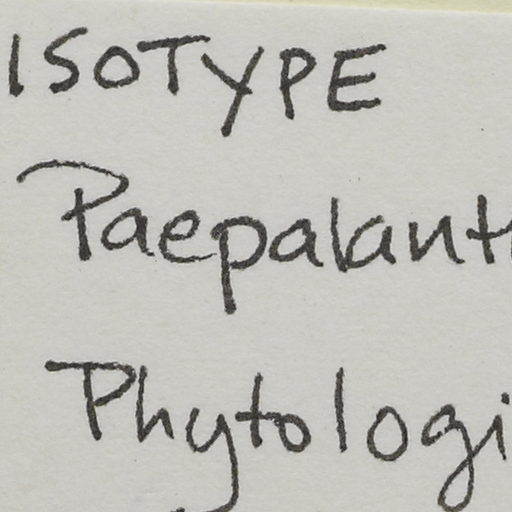 ISOTYPE
Paepalant
Phytologi